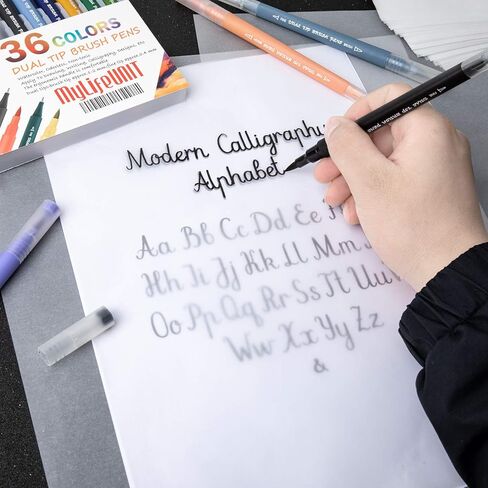 36 COLORS
DUAL TIP BRUSH PENS
MyLifeUNIT
Modern Calligraphy
Alphabet
Aa Bb Cc Dd Ee
Hh Ii Jj Kk Ll Mm
Oo Pp Qq Rr Ss Tt Uu
Ww Xx Yy Zz
&